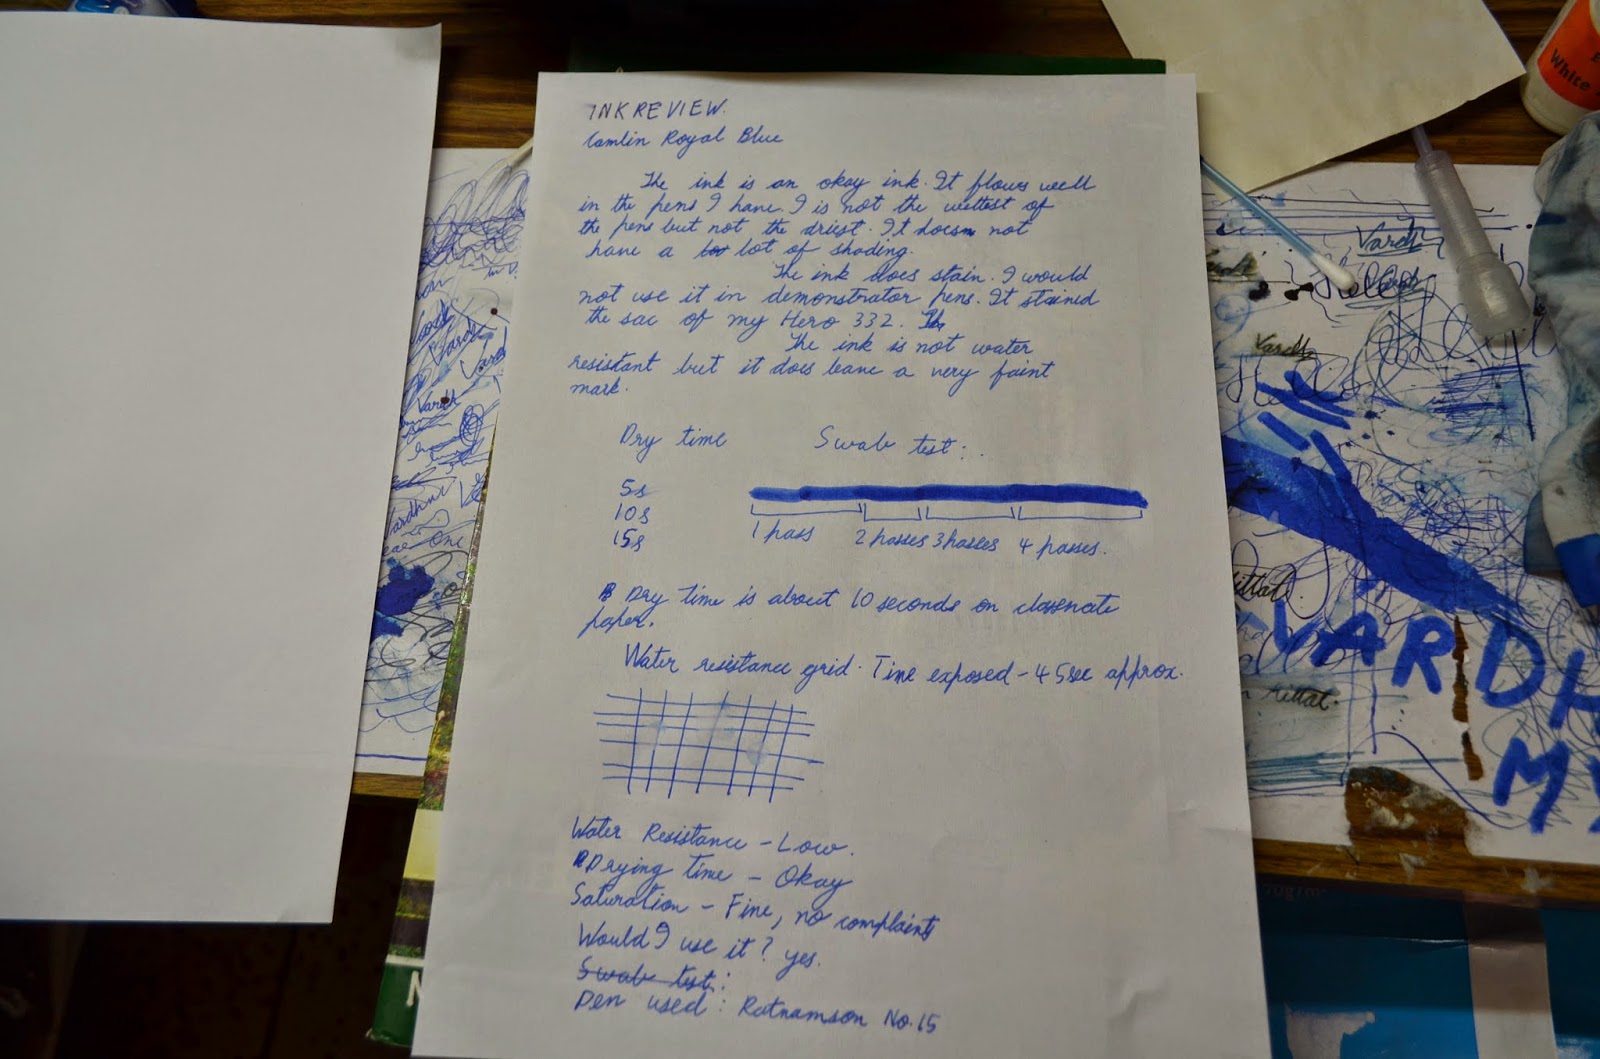 INK REVIEW.
Camlin Royal Blue
The ink is an okay ink. It flows well
in the pens I have. I is not the wettest of
the pens but not the driest. It does not
have a lot of shading.
The ink does stain. I would
not use it in demonstrator pens. It stained
the sac of my Hero 332. Th
The ink is not water
resistant but it does leave a very faint
mark.
Dry time Swab test:.
5s
10s
15s
1 pass 2 passes 3 passes 4 passes.
Dry time is about 10 seconds on classmate
paper.
Water resistance grid. Time exposed - 45sec approx.
Water Resistance - Low.
Drying time - Okay
Saturation - Fine, no complaints
Would I use it? yes.
Swab test:
Pen used: Ratnamson No. 15
White
Vardh
Vardh
Vardh
Hello
Mittal
VARDH
Mittal.
M
N